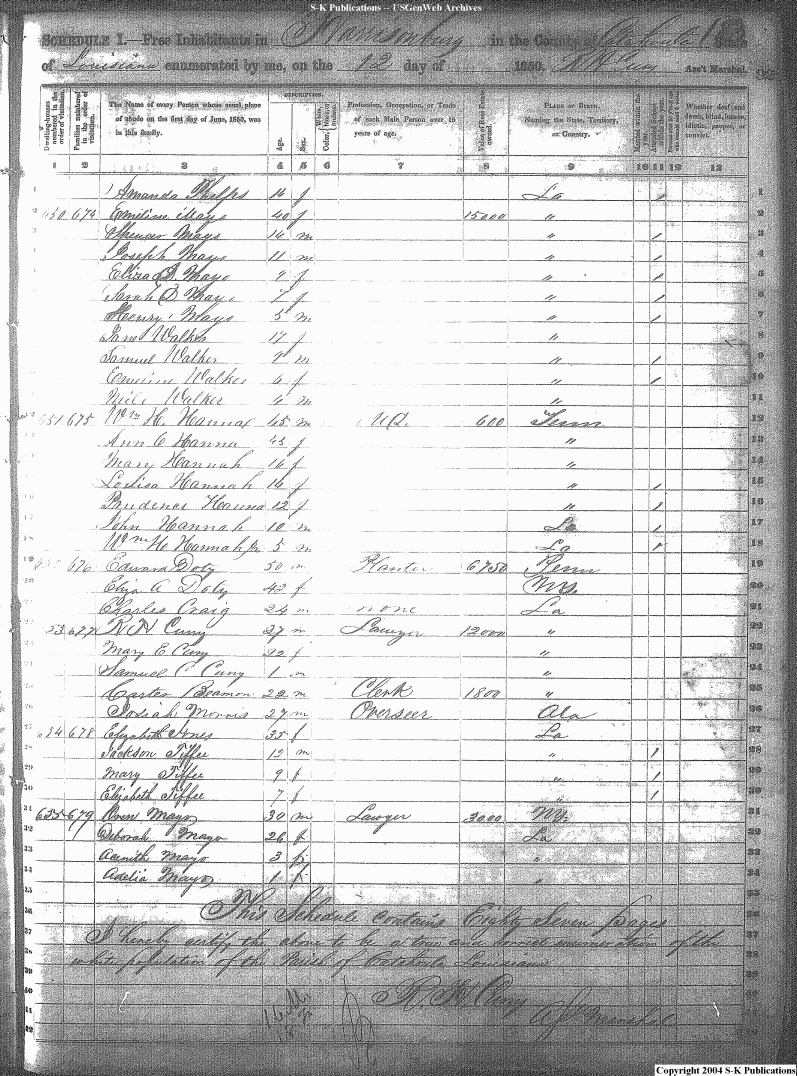 S-K Publications -- USGenWeb Archives
SCHEDULE I.—Free Inhabitants in Harrisonburg in the County of Catahoula State
of Louisiana enumerated by me, on the 12 day of 1850. R H Cuny Ass't Marshal.
DESCRIPTION.
Dwelling-houses numbered in the order of visitation.
Families numbered in the order of visitation.
The Name of every Person whose usual place of abode on the first day of June, 1850, was in this family.
Age.
Sex.
Color,
Profession, Occupation, or Trade of each Male Person over 15 years of age.
Value of Real Estate owned.
PLACE OF BIRTH. Naming the State, Territory, or Country.
Whether deaf and dumb, blind, insane, idiotic, pauper, or convict.
1 2 3 4 5 6 7 8 9 10 11 12 13
Amanda Phelps 14 f La / 1
650 674 Emiline Mayo 40 f 15000 " 2
Spencer Mayo 14 m " / 3
Joseph Mayo 11 m " / 4
Eliza B. Mayo 9 f " / 5
Sarah B Mayo 7 f " / 6
Henry Mayo 5 m " / 7
Jane Walker 17 f " 8
Samuel Walker m " / 9
Emeline Walker 6 f " / 10
Walker 4 m " 11
651 675 Wm H. Hannah 45 m M.D. 600 Tenn 12
Ann C Hanna 43 f " 13
Mary Hannah 16 f " 14
Louisa Hannah 14 f " / 15
Prudence Hanna 12 f " / 16
John Hannah 10 m La / 17
Wm H. Hannah Jr 5 m La / 18
676 Edward Doty 50 m Planter 6750 Penn 19
Eliza A Doty 42 f Ms. 20
Charles Craig 24 m none La 21
53 677 R H Cuny 27 m Lawyer 12000 " 22
Mary E Cuny 22 f " 23
Samuel C Cuny 1 m " 24
Carter Beamon 22 m Clerk 1800 " 25
Josiah Morris 27 m Overseer Ala 26
654 678 Elizabeth Jones 35 f La 27
Jackson Tiffee 12 m " / 28
Mary Tiffee 9 f " / 29
Elizabeth Tiffee 7 f " / 30
655 679 Oren Mayo 30 m Lawyer 3000 NY. 31
Deborah Mayo 26 f La 32
Asenith Mayo 3 f " 33
Adelia Mayo 1 f " 34
This Schedule contains Eighty Seven pages
I hereby certify the above to be a true and correct enumeration of the
white population of the Parish of Catahoula Louisiana
R. H. Cuny
A S Marshal
Copyright 2004 S-K Publications